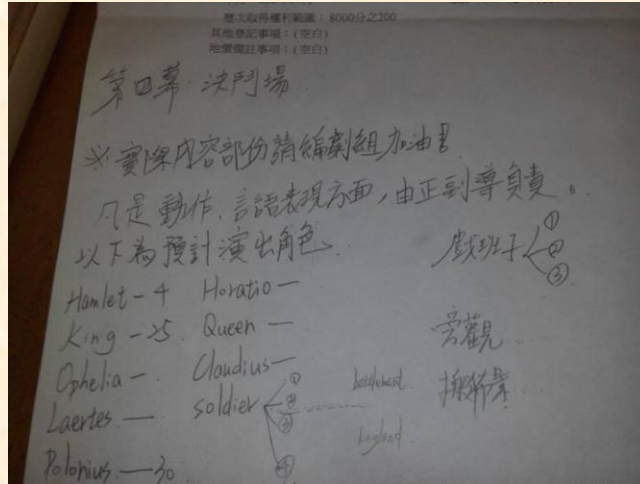 歷次取得權利範圍：8000分之200
其他登記事項：(空白)
地價備註事項：(空白)
第四幕：決鬥場
※實際內容部份請編劇組加油!
凡是動作、言語表現方面，由正副導負責。
以下為預計演出角色
戲班子 ① ② ③
Hamlet－4 Horatio－
King－25. Queen－
旁觀
Ophelia－. Claudius－
Laertes.－ soldier ① ② ③ ④
battlement.
England.
Polonius.－30